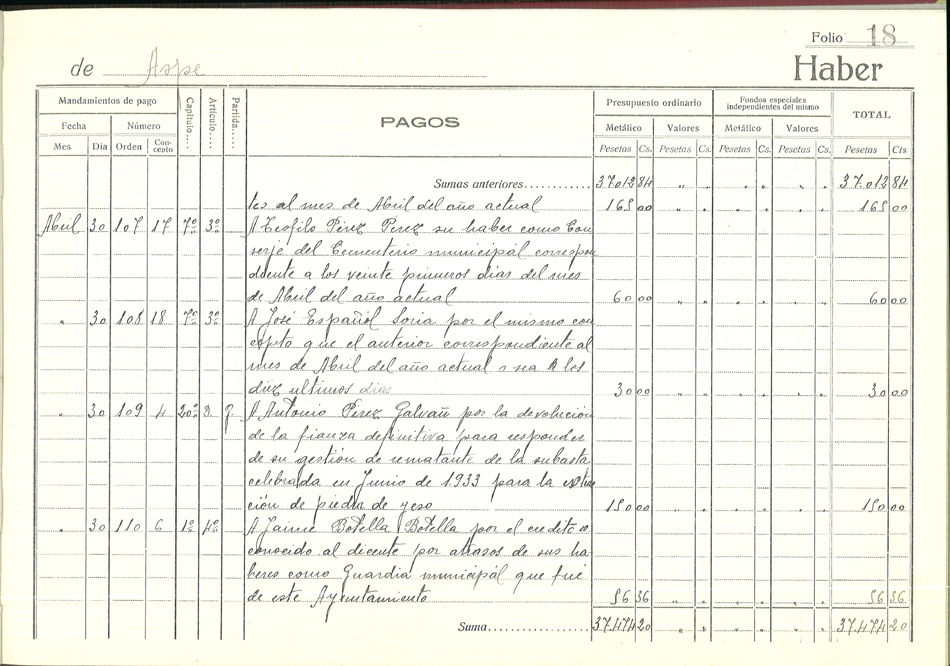 Folio 18
de Aspe Haber
Mandamientos de pago Capítulo.... Artículo.... Partida..... PAGOS Presupuesto ordinario Fondos especiales independientes del mismo TOTAL
Fecha Número Metálico Valores Metálico Valores
Mes Día Orden Concepto Pesetas Cs. Pesetas Cs. Pesetas Cs. Pesetas Cs. Pesetas Cts.
Sumas anteriores........... 37.012 84 " " " " " " 37.012 84
tes al mes de Abril del año actual 165 00 " " " " " " 165 00
Abril 30 107 17 7º 3º A Teofilo Pérez Perez su haber como Con
serje del Cementerio municipal correspon
diente a los veinte primeros dias del mes
de Abril del año actual 60 00 " " " " " " 60 00
" 30 108 18 7º 3º A José Español Soria por el mismo con
cepto que el anterior correspondiente al
mes de Abril del año actual o sea a los
diez ultimos dias 30 00 " " " " " " 30 00
" 30 109 4 20º A Antonio Pérez Galvañ por la devolución
de la fianza definitiva para responder
de su gestión de rematante de la subasta
celebrada en Junio de 1.933 para la
ción de piedra de yeso 150 00 " " " " " " 150 00
" 30 110 6 1º 4º A Jaime Botella Botella por el credito
conocido al dicente por atrasos de sus ha-
beres como Guardia municipal que fué
de este Ayuntamiento 56 36 " " " " " " 56 36
Suma................... 37.474 20 " " " " " " 37.474 20